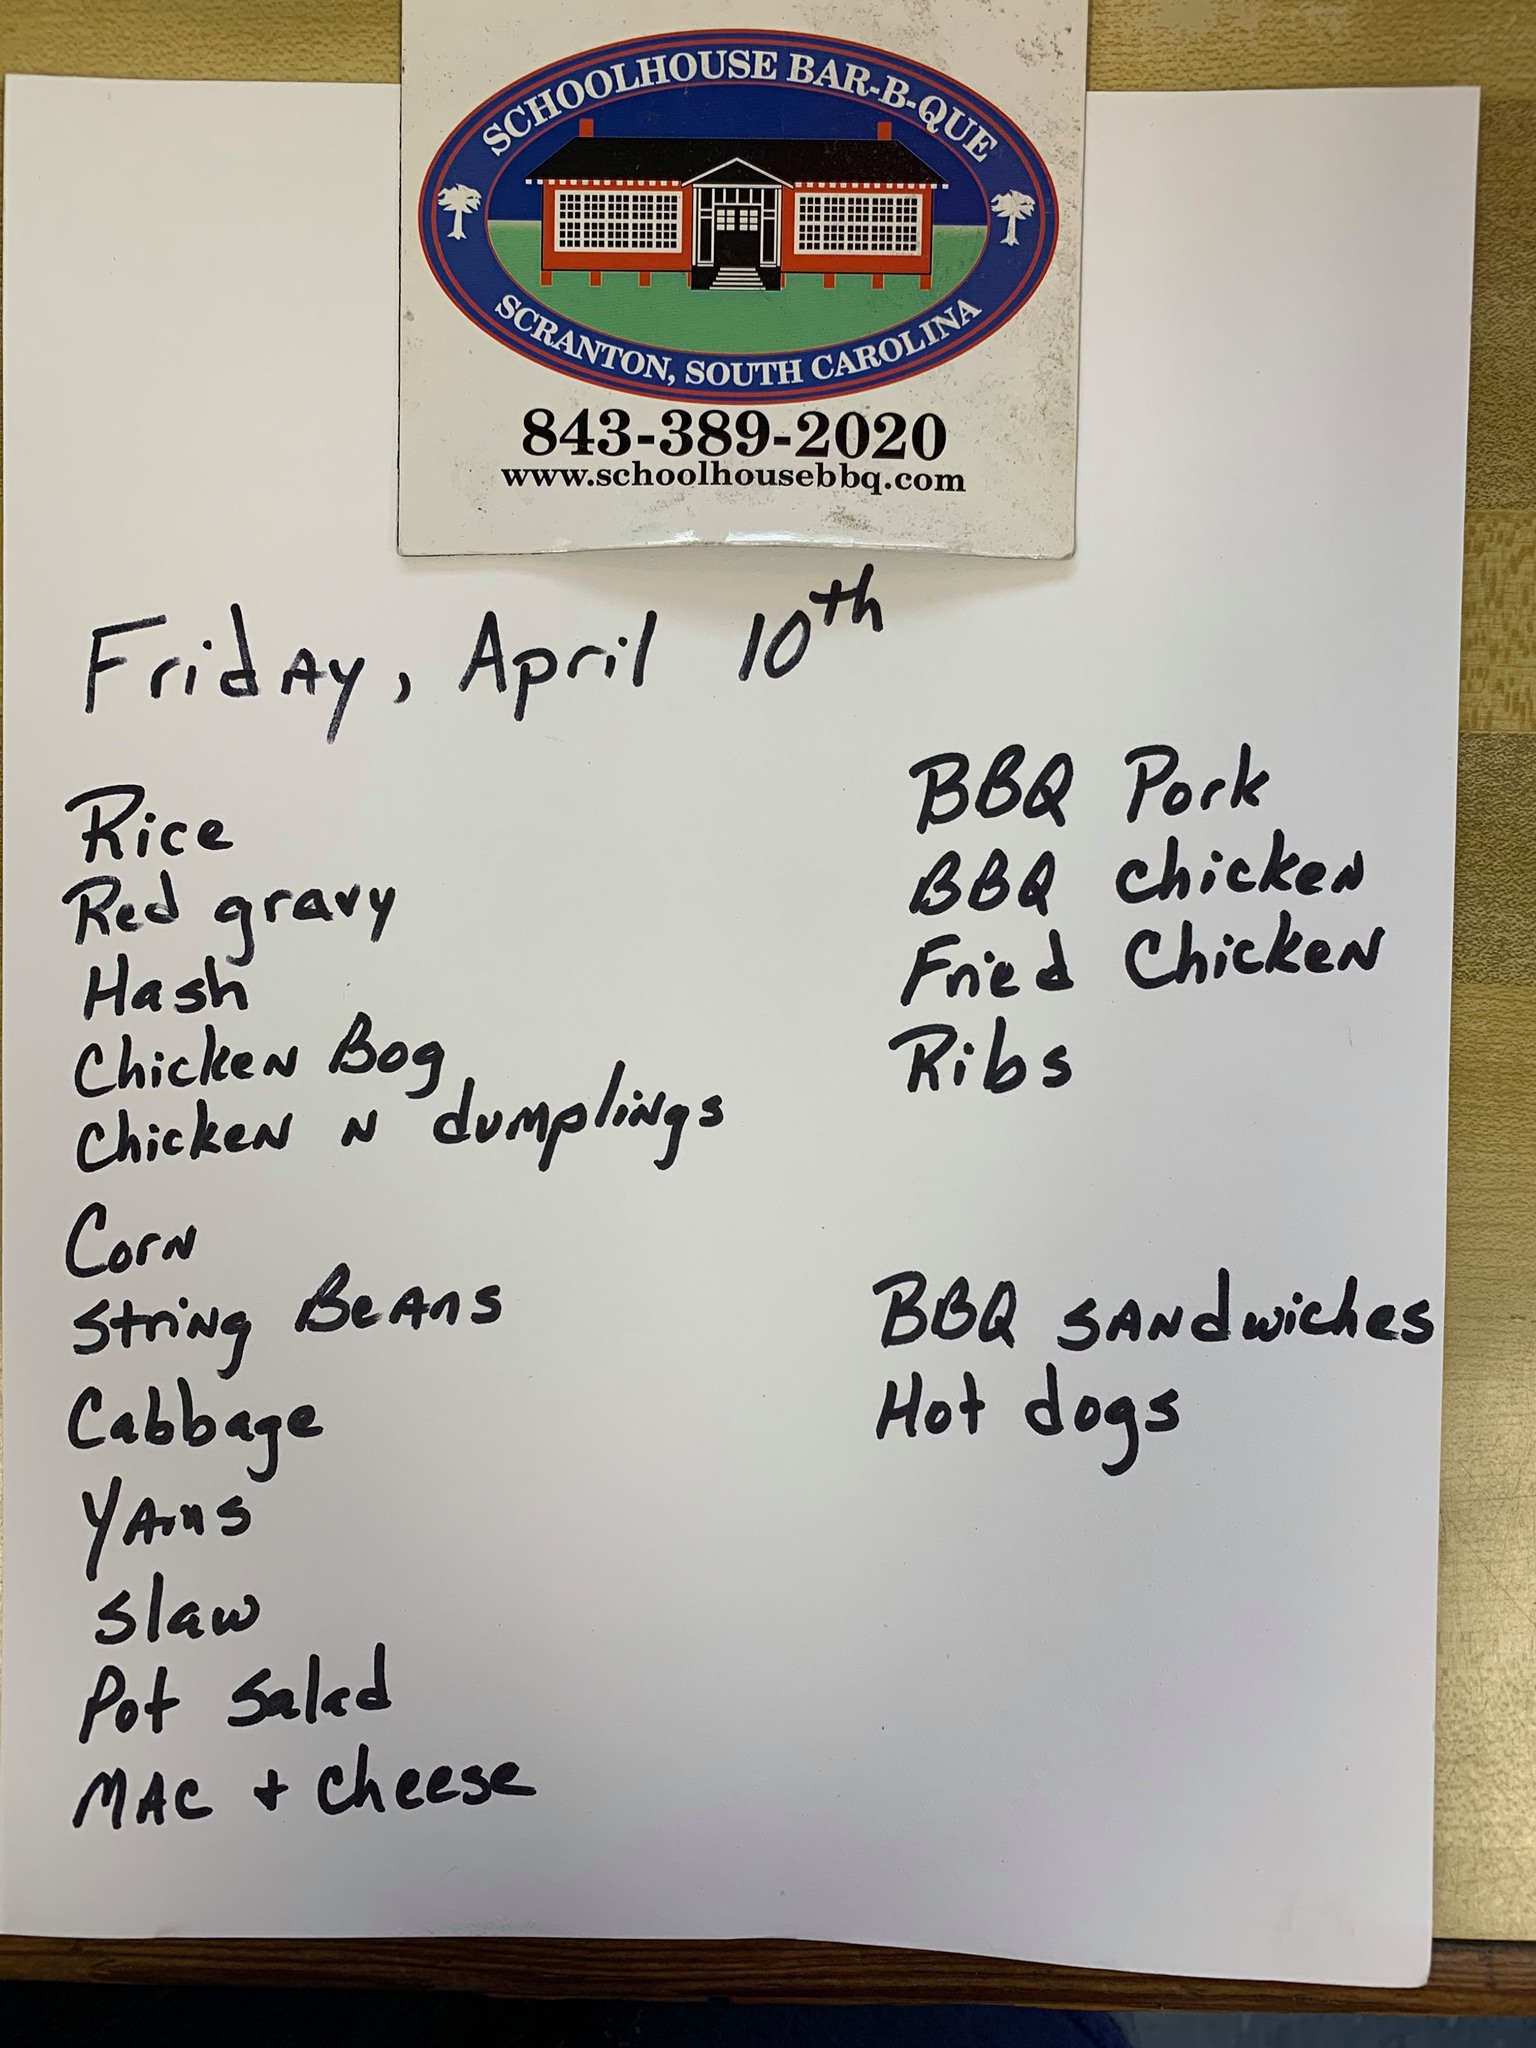 SCHOOLHOUSE BAR-B-QUE
SCRANTON, SOUTH CAROLINA
843-389-2020
www.schoolhousebbq.com
Friday, April 10th
Rice
Red gravy
Hash
Chicken Bog
Chicken N dumplings
Corn
String Beans
Cabbage
Yams
Slaw
Pot Salad
Mac + Cheese
BBQ Pork
BBQ Chicken
Fried Chicken
Ribs
BBQ Sandwiches
Hot dogs